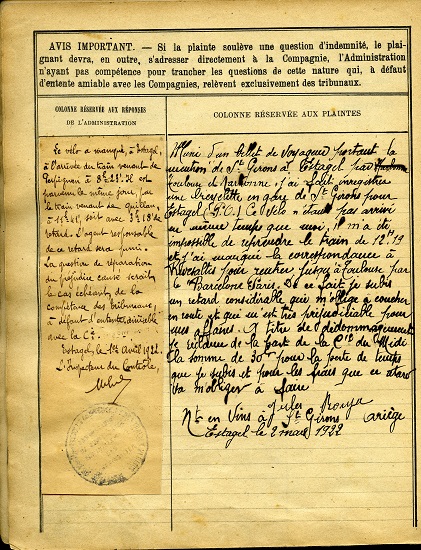 AVIS IMPORTANT. — Si la plainte soulève une question d'indemnité, le plai-
gnant devra, en outre, s'adresser directement à la Compagnie, l'Administration
n'ayant pas compétence pour trancher les questions de cette nature qui, à défaut
d'entente amiable avec les Compagnies, relèvent exclusivement des tribunaux.
COLONNE RÉSERVÉE AUX RÉPONSES
DE L'ADMINISTRATION
Le vélo a manqué, à Estagel,
à l'arrivée du train venant de
Perpignan à 8h23. Il est
parvenu le même jour, par
le train venant de Quillan,
à 11h41, soit avec 3h18 de
retard. L'agent responsable
de ce retard sera puni.
La question de réparation
du préjudice cause serait,
le cas échéant, de la
compétence des tribunaux
à défaut d'entente amiable
avec la Cie.
Estagel, le 1er Avril 1922
L'Inspecteur du Contrôle,
COLONNE RÉSERVÉE AUX PLAINTES
Muni d'un billet de voyageur portant la
mention de St Girons à Estagel par
Toulouse & Narbonne, j'ai fait enregistrer
une bicyclette en gare de St Girons pour
Estagel (P.O.) Ce vélo n'étant pas arrivé
en même temps que moi, il m'a été
impossible de reprendre le train de 12h19
et j'ai manqué la correspondance à
Rivesaltes pour rentrer jusqu'à Toulouse par
le Barcelone Paris. De ce fait je subis
un retard considérable qui m'oblige à coucher
en route et qui m'est très préjudiciable pour
mes affaires. A titre de dédommagement
je réclame de la part de la Cie du Midi
la somme de 30f pour la perte de temps
que je subis et pour les frais que ce retard
va m'obliger à faire
Jules
Nt en Vins à St Girons Ariège
Estagel le 2 mars 1922